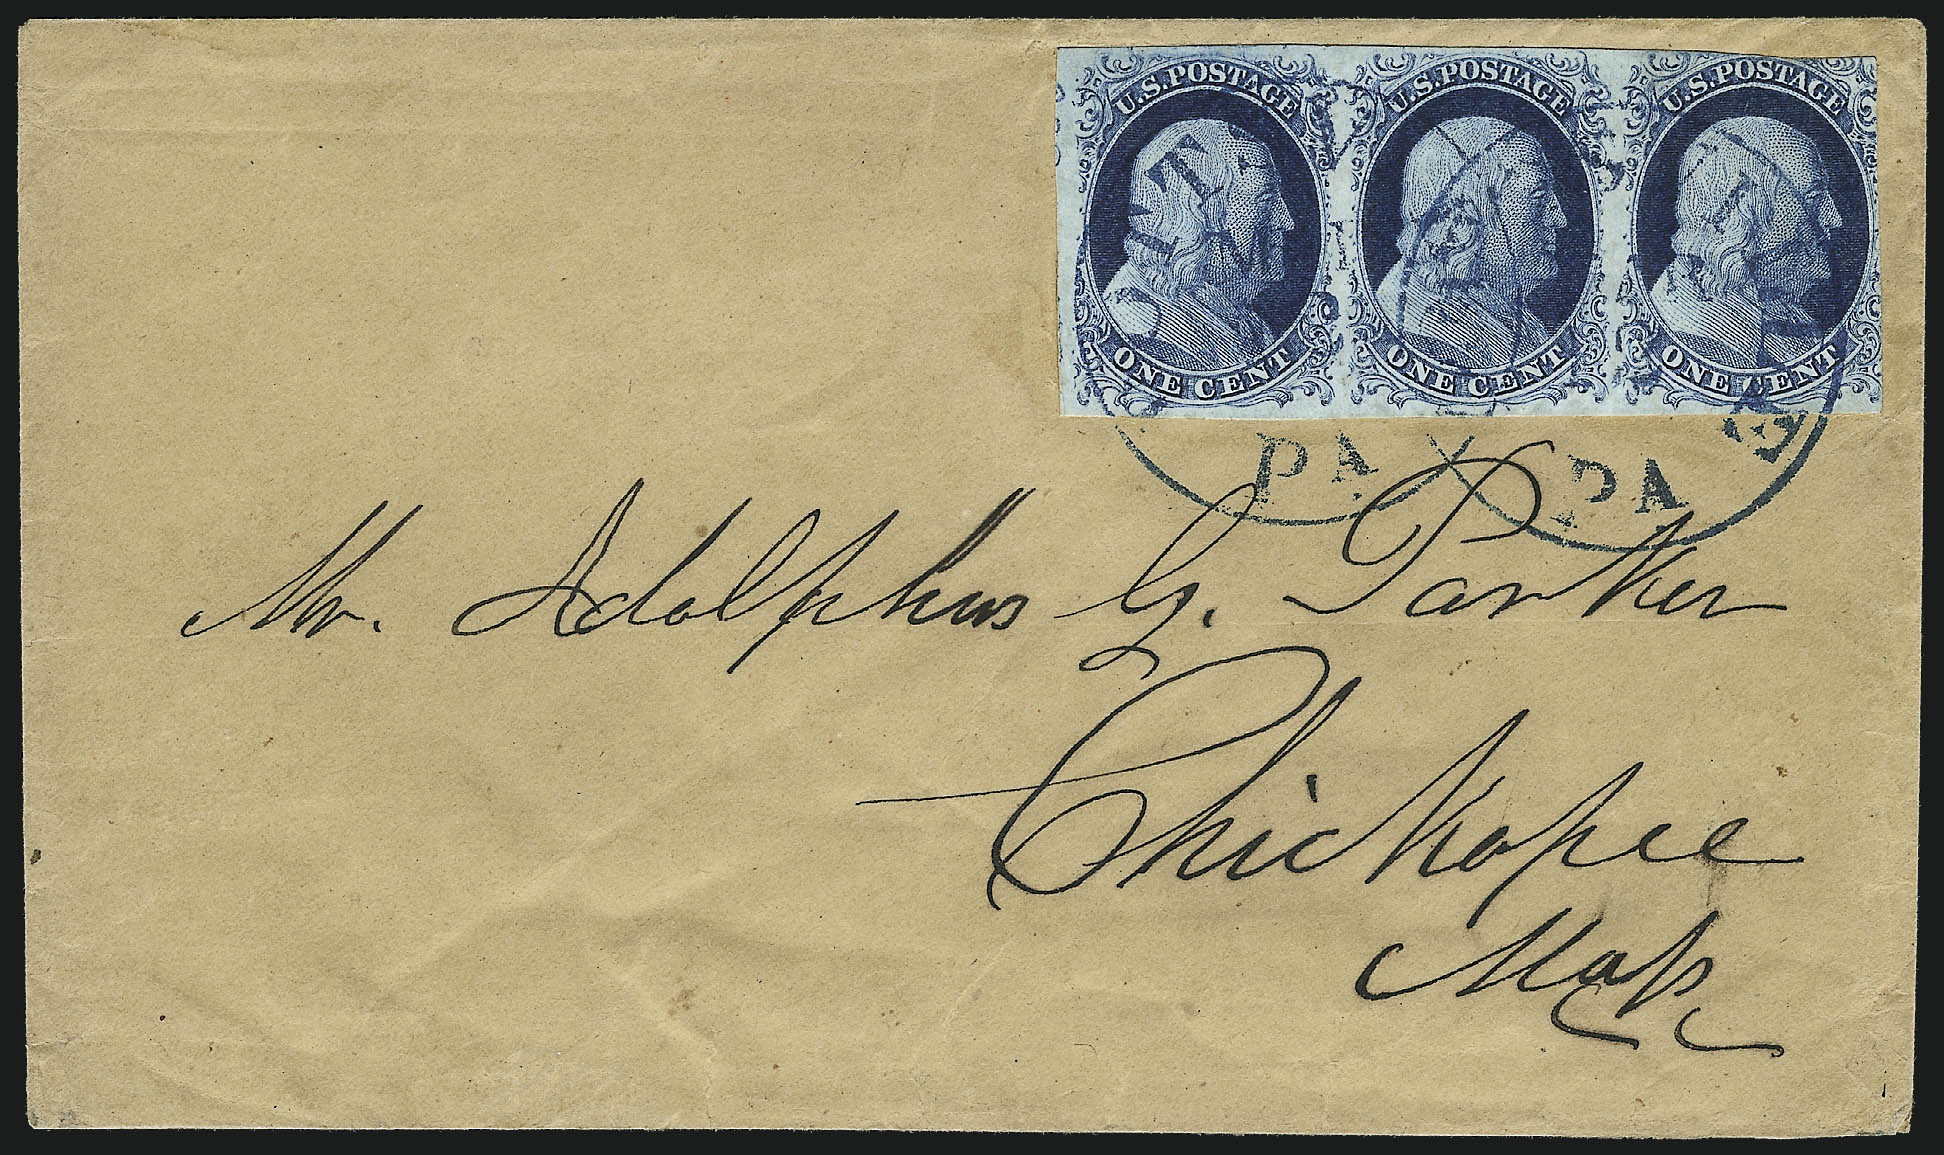 U.S. POSTAGE U.S. POSTAGE U.S. POSTAGE
ONE CENT ONE CENT ONE CENT
PA PA
Mr. Adolphus G. Parker
Chickopee
Mass